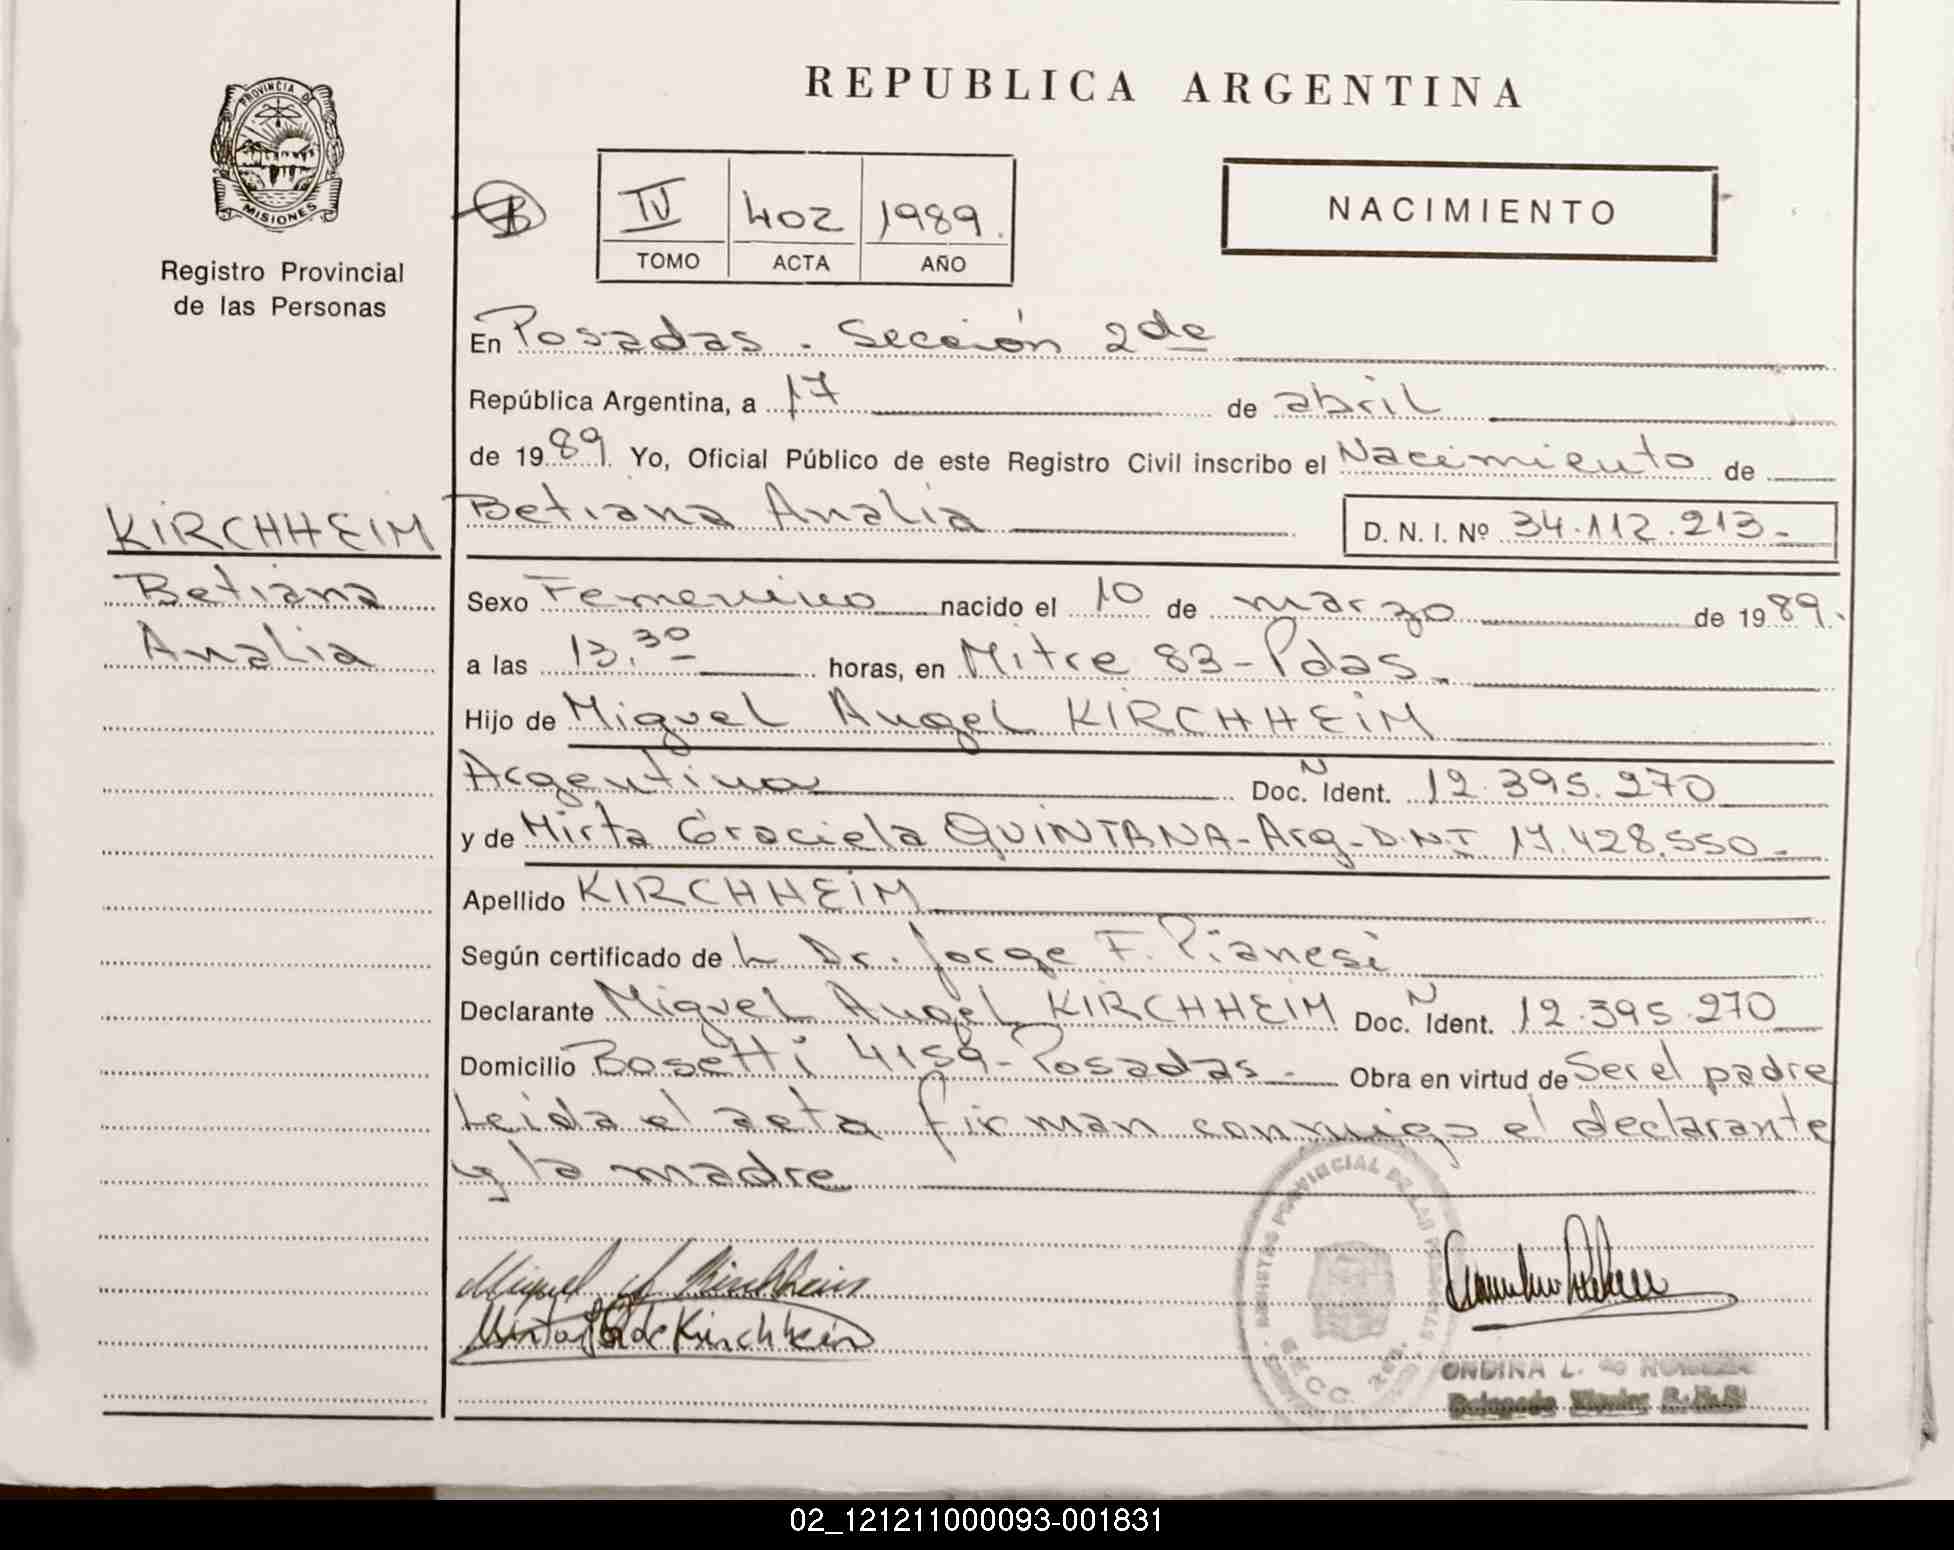 REPUBLICA ARGENTINA
PROVINCIA DE
MISIONES
Registro Provincial
de las Personas
IV 402 1989.
TOMO ACTA AÑO
NACIMIENTO
En Posadas - Sección 2da
República Argentina, a 17 de abril
de 1989. Yo, Oficial Público de este Registro Civil inscribo el Nacimiento de
Betiana Analia D. N. I. Nº 34.112.213-
KIRCHHEIM
Betiana
Analia
Sexo Femenino nacido el 10 de marzo de 1989.
a las 13.30 horas, en Mitre 83-Pdas.
Hijo de Miguel Angel KIRCHHEIM
Argentino Doc. N Ident. 12.395.270
y de Mirta Graciela QUINTANA-Arg-D.N.I 17.428.550-
Apellido KIRCHHEIM
Según certificado de L Dr. Jorge F. Pianesi
Declarante Miguel Angel KIRCHHEIM Doc. N Ident. 12.395.270
Domicilio Bosetti 4159-Posadas- Obra en virtud de Ser el padre
Leida el acta firman conmigo el declarante
y la madre
REGISTRO PROVINCIAL DE LAS PERSONAS
SECC. 2da.
Miguel A Kirchheim
Mirta Q de Kirchheim
ONDINA L. de
Delegado Titular R.N.P.
02_121211000093-001831